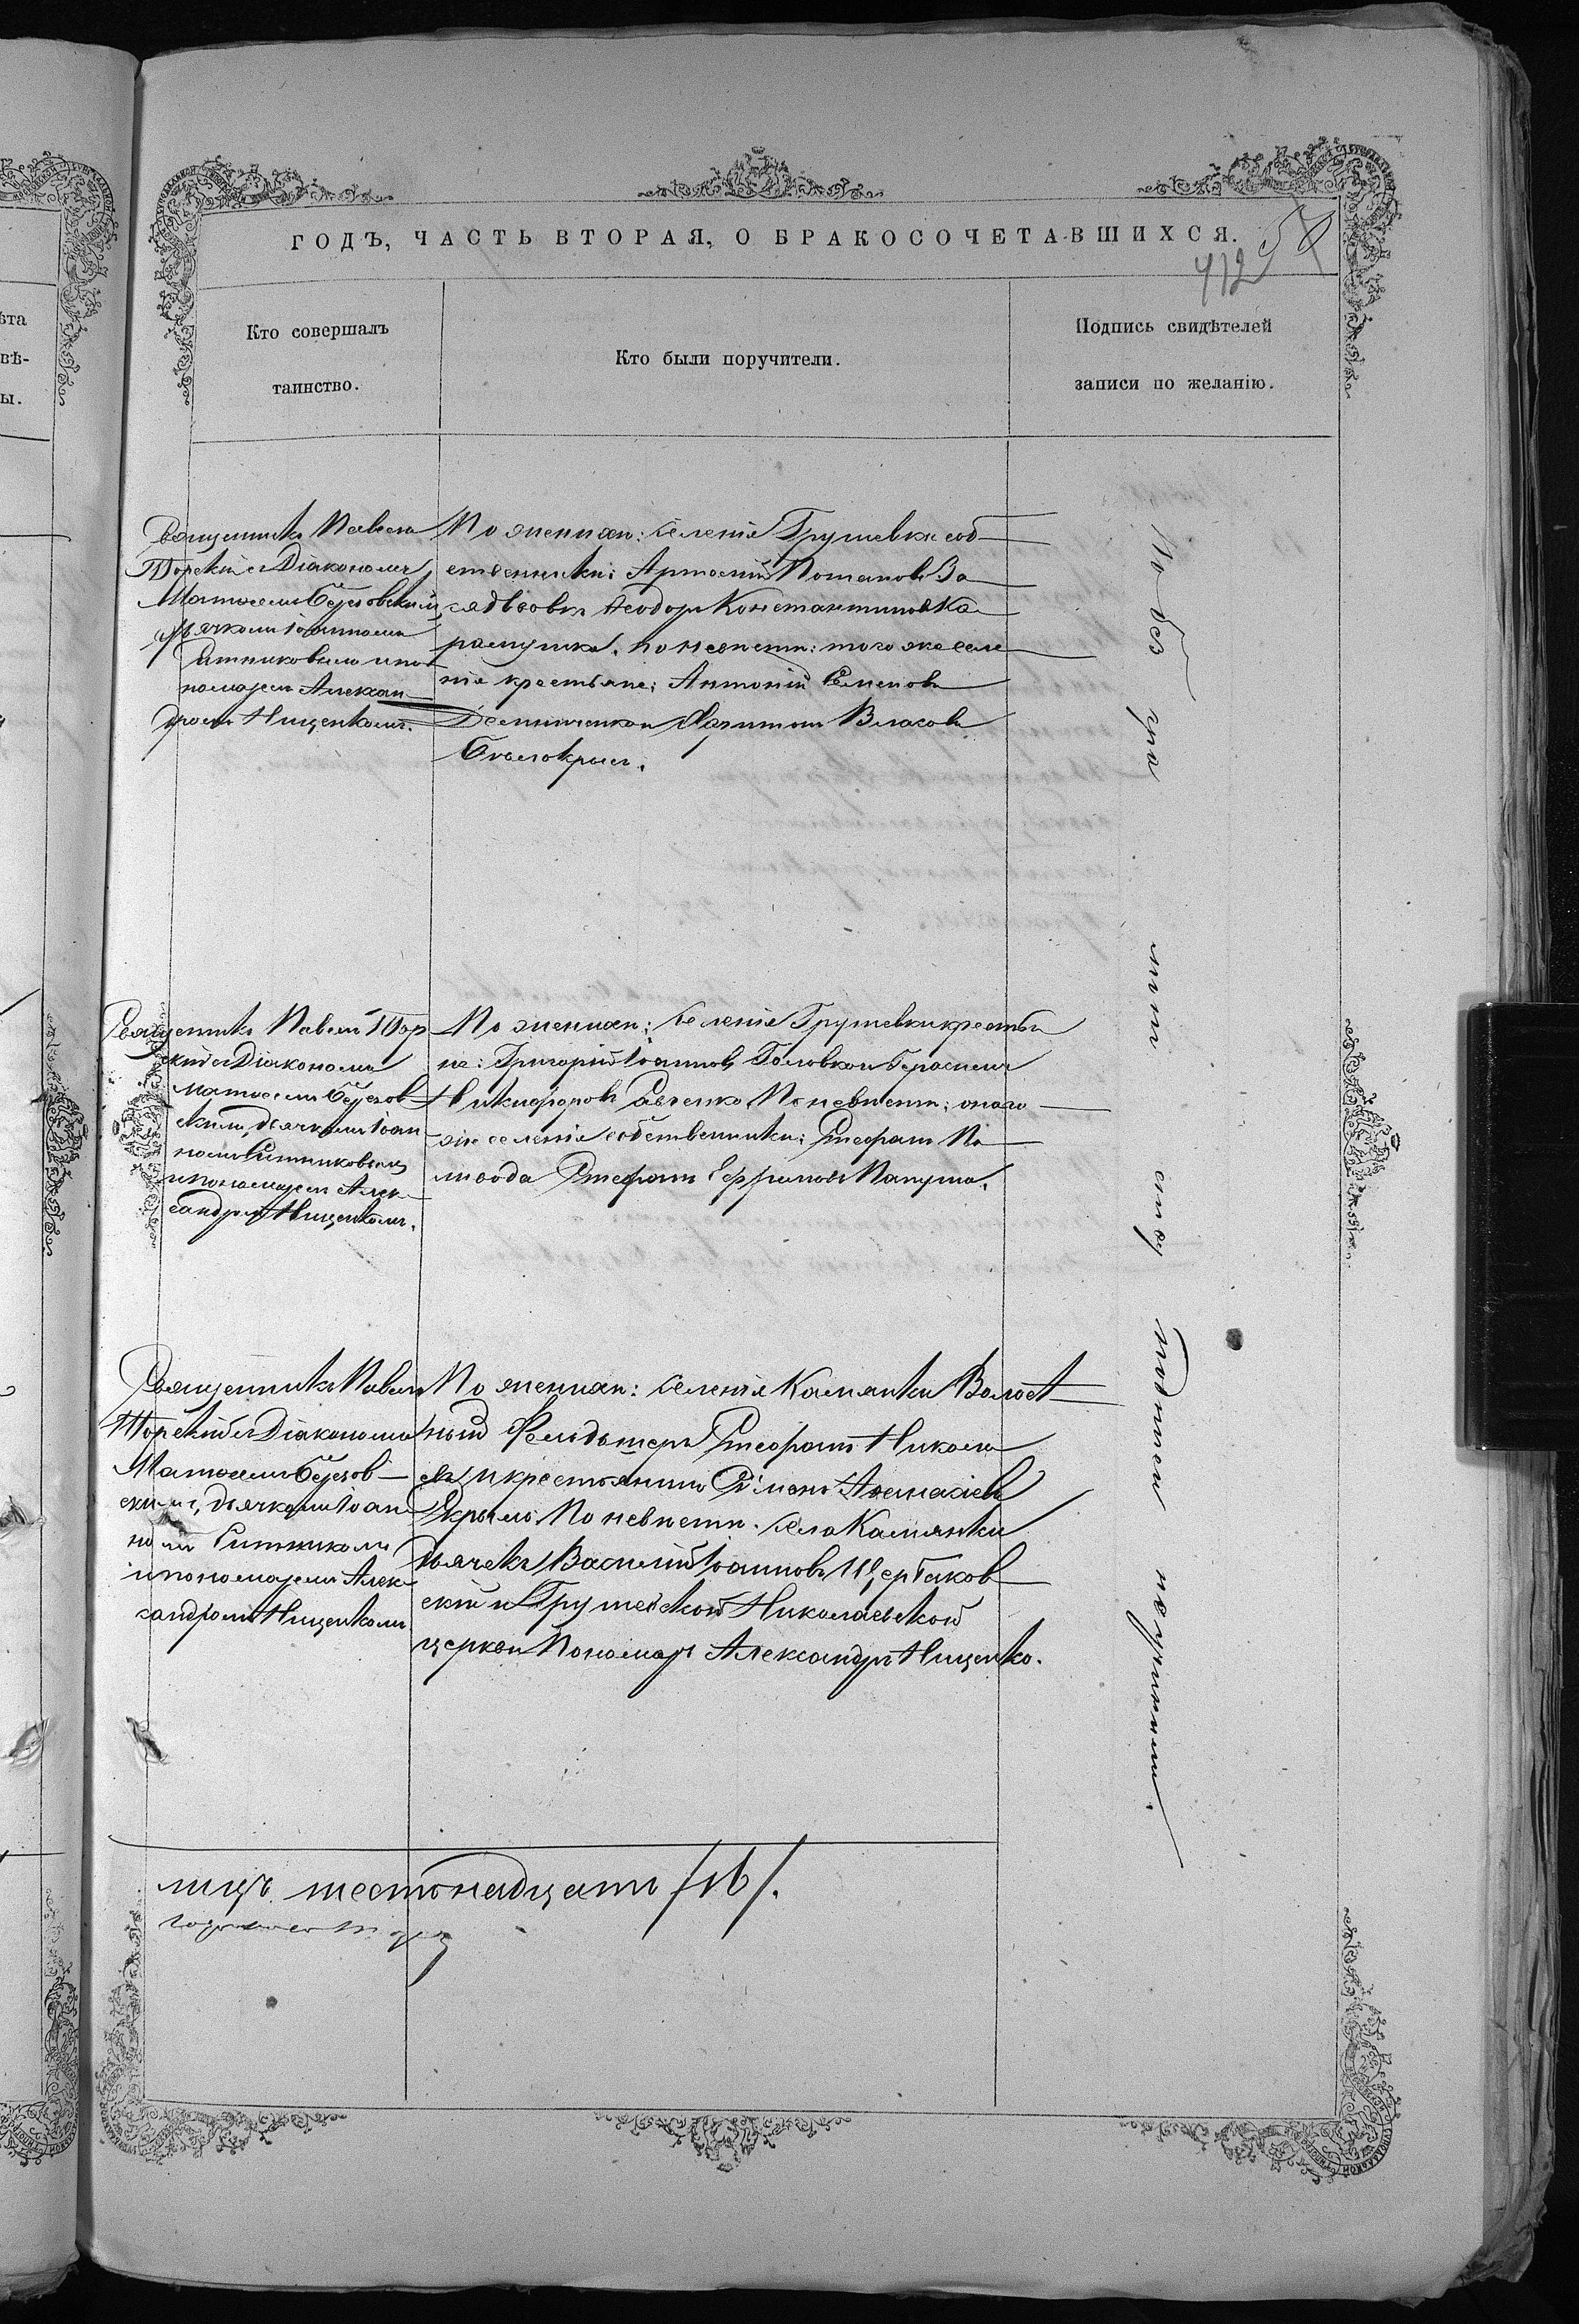 ГОДЪ, ЧАСТЬ ВТОРАЯ, О БРАКОСОЧЕТАВШИХСЯ.
412
Кто совершалъ
таинство.
Кто были поручители.
Подпись свидѣтелей
записи по желанію.
Священникъ Павелъ
Торскій съ Діакономъ
Матѳеемъ Березовскимъ,
дьячкомъ Іоанномъ
Ситниковымъ и по-
номаремъ Алексан-
дромъ Нищенкомъ.
По женихѣ: селенія Грушевки соб-
ственники: Потаповъ За-
Ѳеодоръ Константиновъ Ка-
рапушка. по невѣстѣ: того же селе-
нія крестьяне: Антоній Семеновъ
Демитченко и Власовъ
Бѣлокрыс.
Священникъ Павелъ Тор-
скій съ Діакономъ
Матѳеемъ Березов-
скимъ, дьячкомъ Іоан-
номъ Ситниковымъ
и пономаремъ Алек-
сандромъ Нищенкомъ.
По женихѣ: селенія Грушевки крестья-
не: Григорій Іоанновъ Головко и Герасимъ
Никифоровъ Савченко. По невѣстѣ: онаго
же селенія собственники: Стефанъ
Стефанъ Папуша.
Священникъ Павелъ
Торскій съ Діакономъ
Матѳеемъ Березов-
скимъ, дьячкомъ Іоан-
номъ Ситникомъ
и пономаремъ Алек-
сандромъ Нищенкомъ
По женихѣ: селенія Камянки Волост-
ный Фельдшеръ Стефанъ Никола-
евъ и крестьянинъ
По невѣстѣ. села Камянки
дьячекъ Василій Іоанновъ Щербаков-
скій и Грушевской Николаевской
церкви Пономарь Александръ Нищенко.
По без гра мот ству подписи не учинили.
лицъ шестьнадцать /16/.